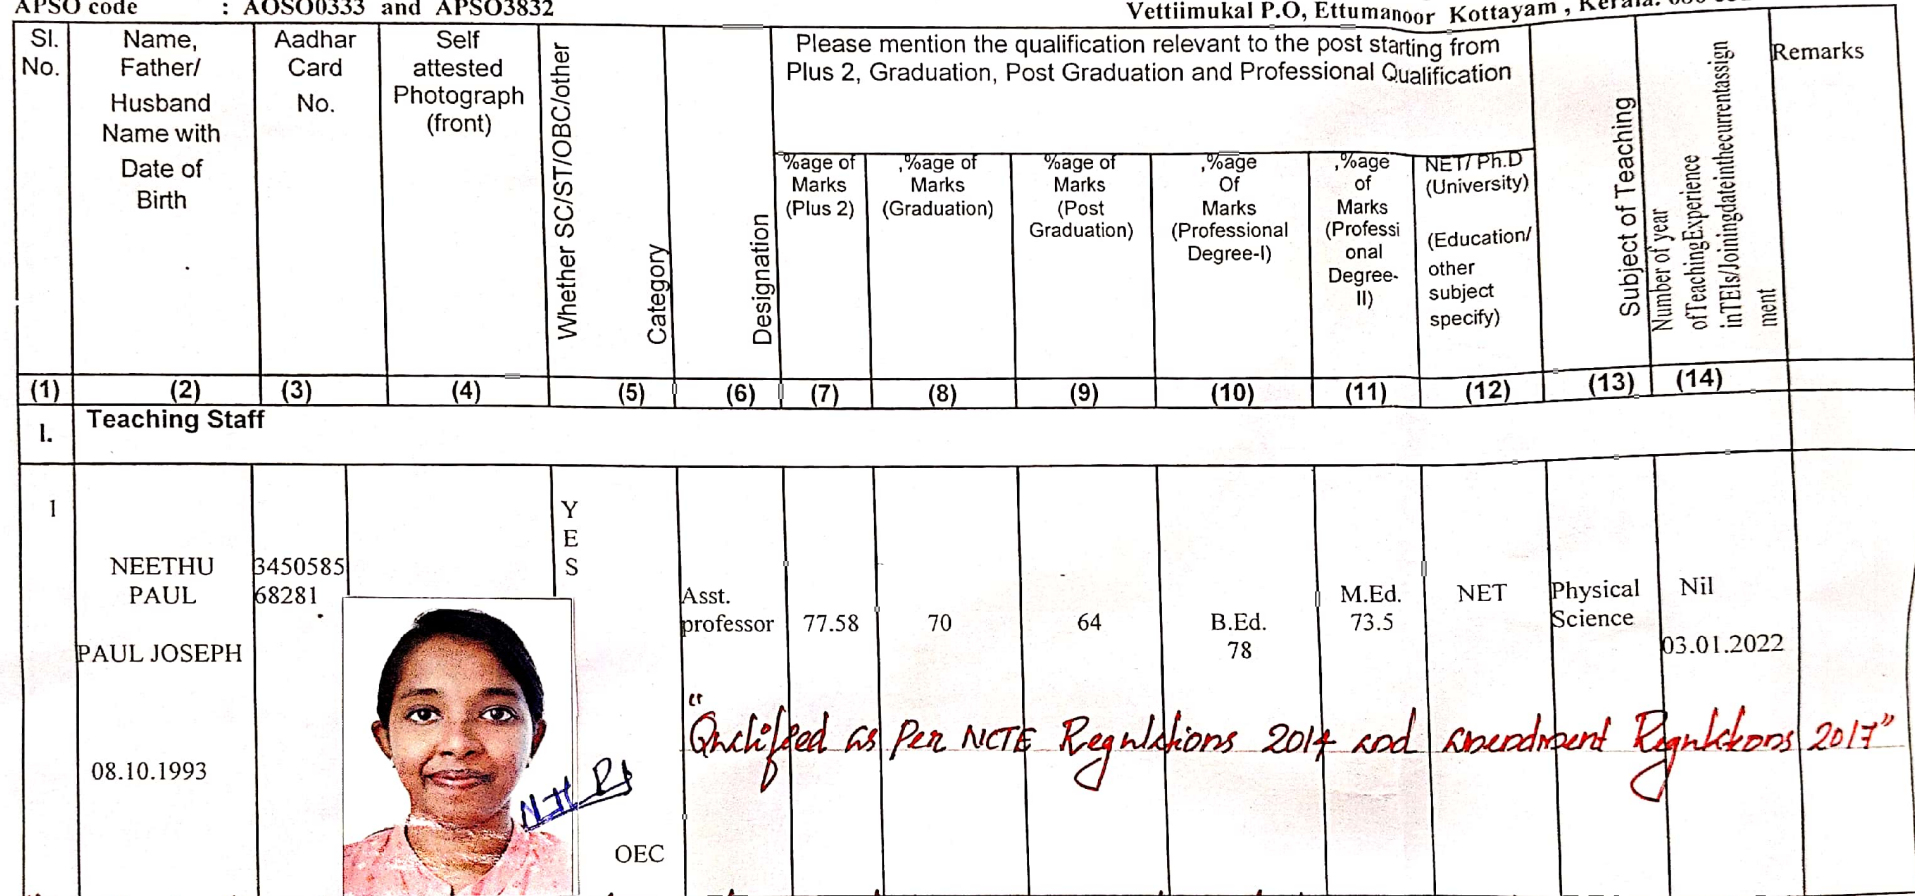 APSO code : AOSO0333 and APSO3832
Vettiimukal P.O, Ettumanoor Kottayam , Kerala.
Sl. No.
Name, Father/ Husband Name with Date of Birth
Aadhar Card No.
Self attested Photograph (front)
Whether SC/ST/OBC/other
Category
Designation
Please mention the qualification relevant to the post starting from
Plus 2, Graduation, Post Graduation and Professional Qualification
%age of Marks (Plus 2)
,%age of Marks (Graduation)
%age of Marks (Post Graduation)
,%age Of Marks (Professional Degree-I)
,%age of Marks (Professi onal Degree- II)
NET/ Ph.D (University) (Education/ other subject specify)
Subject of Teaching
Number of year ofTeachingExperience inTEIs/Joiningdateinthecurrentassign ment
Remarks
(1) (2) (3) (4) (5) (6) (7) (8) (9) (10) (11) (12) (13) (14)
I. Teaching Staff
1
NEETHU PAUL
PAUL JOSEPH
08.10.1993
3450585
68281
YES
OEC
Asst. professor
77.58
70
64
B.Ed. 78
M.Ed. 73.5
NET
Physical Science
Nil
03.01.2022
"Qualified as Per NCTE Regulations 2014 and amendment Regulations 2017"